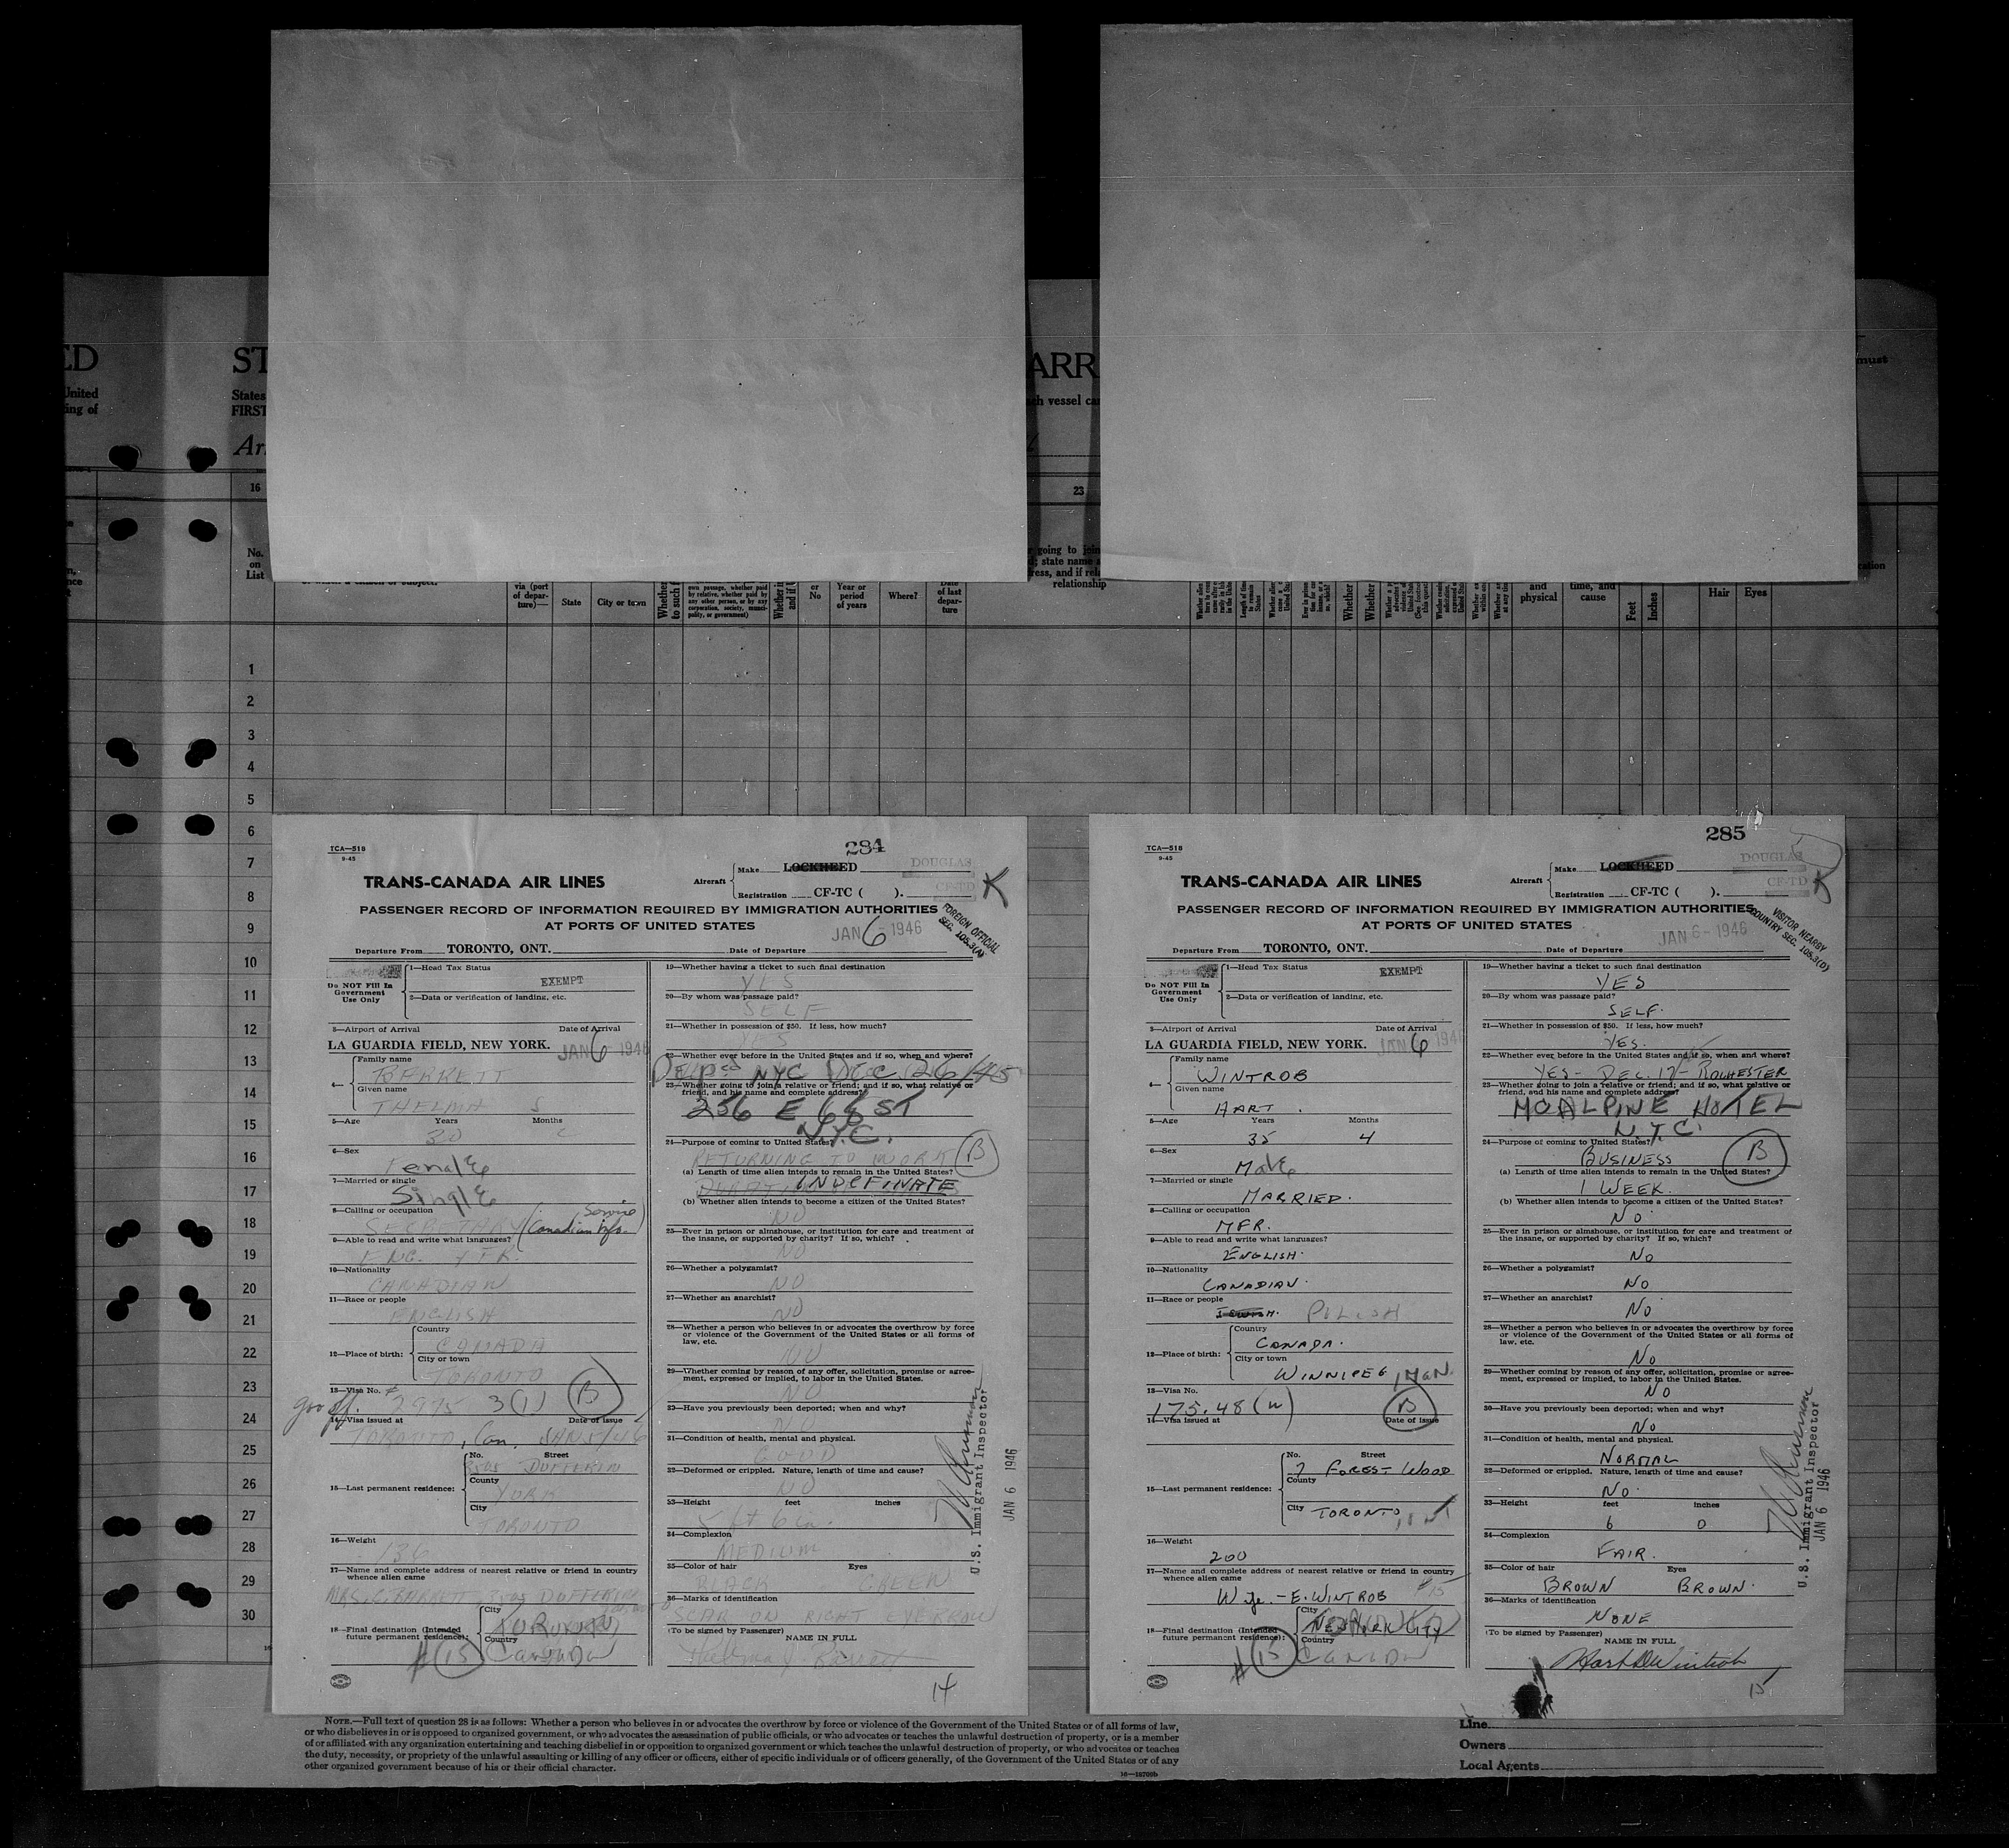 ED
United
ing of
ST
States
FIRST
Ar
ARR
ch vessel ca
must
16
23
No.
on
List
via (port
of depar-
ture)—
State
City or town
Whether
to such
own passage, whether paid
by relative, whether paid by
any other person, or by any
corporation, society, munici-
pality, or government)
or
No
Year or
period
of years
Where?
Date
of last
depar-
ture
going to join
relationship
and
physical
time, and
cause
Feet
Inches
Hair
Eyes
1
2
3
4
5
6
7
8
9
10
11
12
13
14
15
16
17
18
19
20
21
22
23
24
25
26
27
28
29
30
TCA—518
9-45
284
Aircraft
Make LOCKHEED
DOUGLAS
Registration CF-TC ( ).
CF-TD
K
TRANS-CANADA AIR LINES
PASSENGER RECORD OF INFORMATION REQUIRED BY IMMIGRATION AUTHORITIES
AT PORTS OF UNITED STATES
JAN 6 - 1946
FOREIGN OFFICIAL
SEC. 105.3(A)
Departure From TORONTO, ONT.
Date of Departure
Do NOT Fill In
Government
Use Only
1—Head Tax Status
EXEMPT
2—Data or verification of landing, etc.
3—Airport of Arrival
Date of Arrival
LA GUARDIA FIELD, NEW YORK.
JAN 6 1946
4—
Family name
BARRETT
Given name
THELMA S
5—Age
Years
Months
30
6—Sex
Female
7—Married or single
Single
8—Calling or occupation
SECRETARY (Canadian Info. Service)
9—Able to read and write what languages?
ENG. FR.
10—Nationality
CANADIAN
11—Race or people
ENGLISH
12—Place of birth:
Country
CANADA
City or town
TORONTO
13—Visa No.
# 2975 3(1) B
14—Visa issued at
Date of Issue
TORONTO, Can. JAN 5/46
15—Last permanent residence:
No.
Street
DUFFERIN
County
YORK
City
TORONTO
16—Weight
136
17—Name and complete address of nearest relative or friend in country
whence alien came
MRS. E. BARRETT DUFFERIN
18—Final destination (Intended
future permanent residence):
City
TORONTO
Country
Canada
# 15
19—Whether having a ticket to such final destination
YES
20—By whom was passage paid?
SELF
21—Whether in possession of $50. If less, how much?
YES
22—Whether ever before in the United States and if so, when and where?
Dep'd NYC DEC 26/45
23—Whether going to join a relative or friend; and if so, what relative or
friend, and his name and complete address?
256 E 68 ST
N.Y.C.
24—Purpose of coming to United States?
RETURNING TO WORK B
(a) Length of time alien intends to remain in the United States?
INDEFINATE
(b) Whether alien intends to become a citizen of the United States?
NO
25—Ever in prison or almshouse, or institution for care and treatment of
the insane, or supported by charity? If so, which?
NO
26—Whether a polygamist?
NO
27—Whether an anarchist?
NO
28—Whether a person who believes in or advocates the overthrow by force
or violence of the Government of the United States or all forms of
law, etc.
NO
29—Whether coming by reason of any offer, solicitation, promise or agree-
ment, expressed or implied, to labor in the United States.
NO
30—Have you previously been deported; when and why?
NO
31—Condition of health, mental and physical.
GOOD
32—Deformed or crippled. Nature, length of time and cause?
NO
33—Height
feet
inches
5 ft 6 in.
34—Complexion
MEDIUM
35—Color of hair
Eyes
BLACK
GREEN
36—Marks of identification
SCAR ON RIGHT EYEBROW
(To be signed by Passenger)
NAME IN FULL
Thelma S. Barrett
14
U.S. Immigrant Inspector
JAN 6 1946
TCA—518
9-45
285
Aircraft
Make LOCKHEED
DOUGLAS
Registration CF-TC ( ).
CF-TD
K
TRANS-CANADA AIR LINES
PASSENGER RECORD OF INFORMATION REQUIRED BY IMMIGRATION AUTHORITIES
AT PORTS OF UNITED STATES
JAN 6 - 1946
VISITOR NEARBY
COUNTRY SEC. 105.3(D)
Departure From TORONTO, ONT.
Date of Departure
Do NOT Fill In
Government
Use Only
1—Head Tax Status
EXEMPT
2—Data or verification of landing, etc.
3—Airport of Arrival
Date of Arrival
LA GUARDIA FIELD, NEW YORK.
JAN 6 1946
4—
Family name
WINTROB
Given name
HART.
5—Age
Years
Months
35
4
6—Sex
Male
7—Married or single
MARRIED.
8—Calling or occupation
MFR.
9—Able to read and write what languages?
ENGLISH.
10—Nationality
CANADIAN.
11—Race or people
POLISH
12—Place of birth:
Country
CANADA.
City or town
WINNIPEG, MAN.
13—Visa No.
175.48 (W) B
14—Visa issued at
Date of Issue
15—Last permanent residence:
No.
Street
7 FOREST WOOD
County
City
TORONTO
16—Weight
200
17—Name and complete address of nearest relative or friend in country
whence alien came
Wife.—E. WINTROB
#15
18—Final destination (Intended
future permanent residence):
City
NEW YORK CITY
Country
CANADA
# 15
19—Whether having a ticket to such final destination
YES
20—By whom was passage paid?
SELF.
21—Whether in possession of $50. If less, how much?
YES.
22—Whether ever before in the United States and if so, when and where?
YES - DEC. 17 - ROCHESTER
23—Whether going to join a relative or friend; and if so, what relative or
friend, and his name and complete address?
MCALPINE HOTEL
N.Y.C.
24—Purpose of coming to United States?
BUSINESS B
(a) Length of time alien intends to remain in the United States?
1 WEEK.
(b) Whether alien intends to become a citizen of the United States?
NO
25—Ever in prison or almshouse, or institution for care and treatment of
the insane, or supported by charity? If so, which?
NO
26—Whether a polygamist?
NO
27—Whether an anarchist?
NO
28—Whether a person who believes in or advocates the overthrow by force
or violence of the Government of the United States or all forms of
law, etc.
NO
29—Whether coming by reason of any offer, solicitation, promise or agree-
ment, expressed or implied, to labor in the United States.
NO
30—Have you previously been deported; when and why?
NO
31—Condition of health, mental and physical.
NORMAL
32—Deformed or crippled. Nature, length of time and cause?
NO.
33—Height
feet
inches
6
0
34—Complexion
FAIR.
35—Color of hair
Eyes
BROWN
BROWN.
36—Marks of identification
NONE
(To be signed by Passenger)
NAME IN FULL
Hart D Wintrob
15
U.S. Immigrant Inspector
JAN 6 1946
NOTE.—Full text of question 28 is as follows: Whether a person who believes in or advocates the overthrow by force or violence of the Government of the United States or of all forms of law,
or who disbelieves in or is opposed to organized government, or who advocates the assassination of public officials, or who advocates or teaches the unlawful destruction of property, or is a member
of or affiliated with any organization entertaining and teaching disbelief in or opposition to organized government or which teaches the unlawful destruction of property, or who advocates or teaches
the duty, necessity, or propriety of the unlawful assaulting or killing of any officer or officers, either of specific individuals or of officers generally, of the Government of the United States or of any
other organized government because of his or their official character.
16—18706b
Line
Owners
Local Agents